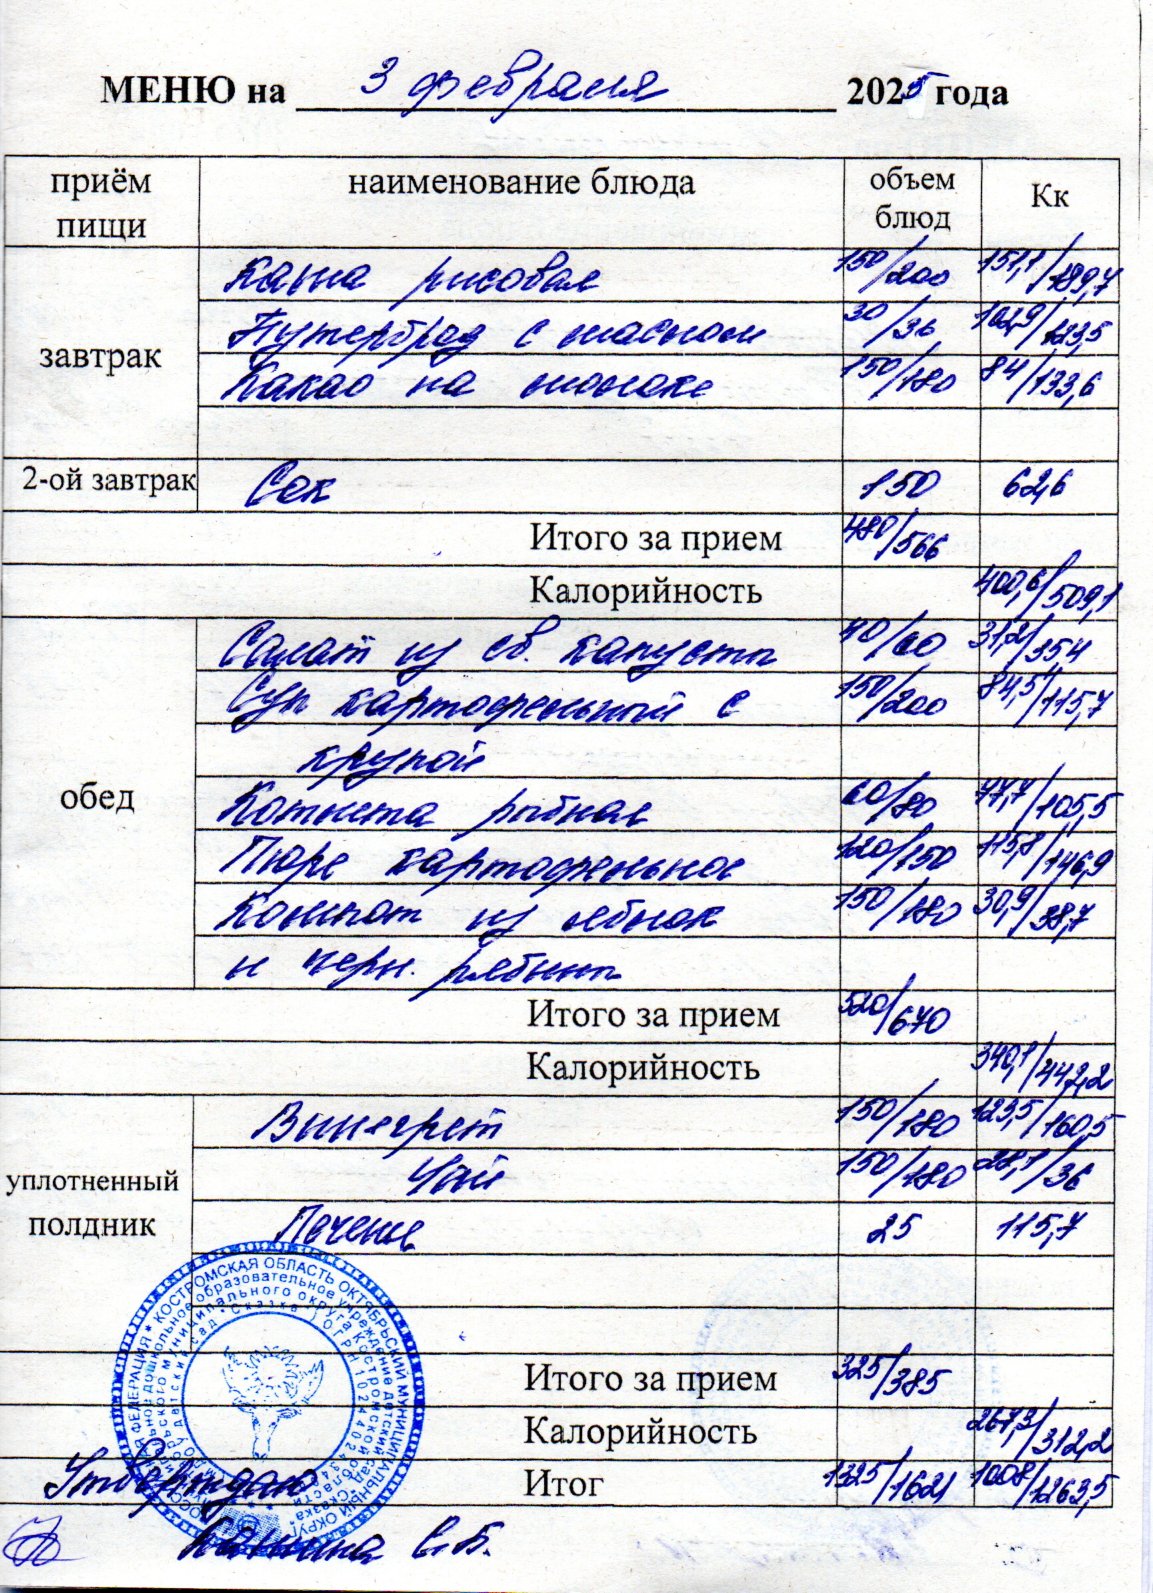 МЕНЮ на 3 февраля 2025 года
приём пищи наименование блюда объем блюд Кк
завтрак
Каша рисовая 150/200 151,1/189,7
Бутерброд с маслом 30/36 102,9/123,5
Какао на молоке 150/180 84/133,6
2-ой завтрак Сок 150 62,6
Итого за прием 480/566
Калорийность 400,6/509,1
обед
Салат из св. капусты 40/60 31,2/35,4
Суп картофельный с 150/200 84,5/115,7
крупой
Котлета рыбная 60/80 77,7/105,5
Пюре картофельное 120/150 115,8/146,9
Компот из яблок 150/180 30,9/38,7
и черн. рябины
Итого за прием 520/670
Калорийность 340,1/442,2
уплотненный полдник
Винегрет 150/180 123,5/160,5
Чай 150/180 28,1/36
Печенье 25 115,7
Итого за прием 325/385
Калорийность 267,3/312,2
Итог 1325/1621 1008/1263,5
Утверждаю
С.Б.
РОССИЙСКАЯ ФЕДЕРАЦИЯ * КОСТРОМСКАЯ ОБЛАСТЬ ОКТЯБРЬСКИЙ МУНИЦИПАЛЬНЫЙ ОКРУГ
дошкольное образовательное учреждение детский сад "Сказка"
муниципального округа Костромской области
детский сад "Сказка"